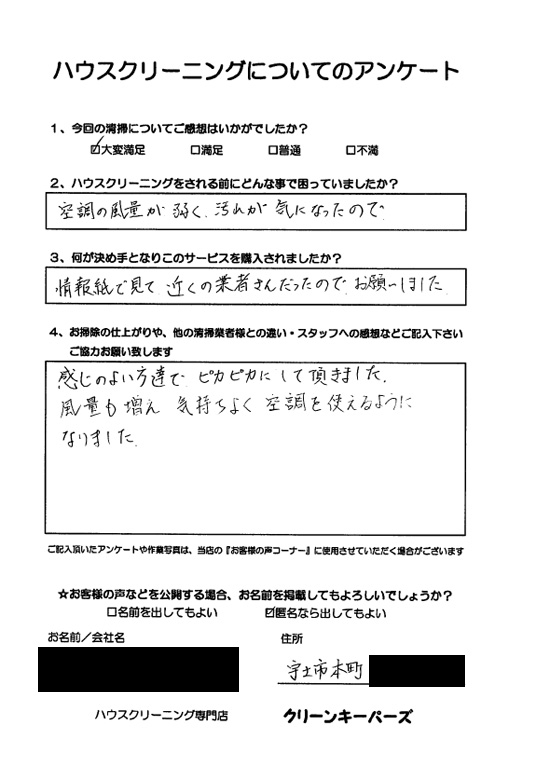 ハウスクリーニングについてのアンケート
1、今回の清掃についてご感想はいかがでしたか？
☑大変満足 □満足 □普通 □不満
2、ハウスクリーニングをされる前にどんな事で困っていましたか？
空調の風量が弱く、汚れが気になったので
3、何が決め手となりこのサービスを購入されましたか？
情報紙で見て 近くの業者さんだったので お願いしました
4、お掃除の仕上がりや、他の清掃業者様との違い・スタッフへの感想などご記入下さい
ご協力お願い致します
感じのよい方達で ピカピカにして頂きました.
風量も増え 気持ちよく 空調を使えるように
なりました.
ご記入頂いたアンケートや作業写真は、当店の『お客様の声コーナー』に使用させていただく場合がございます
☆お客様の声などを公開する場合、お名前を掲載してもよろしいでしょうか？
□名前を出してもよい ☑匿名なら出してもよい
お名前／会社名 住所
宇土市本町
ハウスクリーニング専門店 クリーンキーパーズ